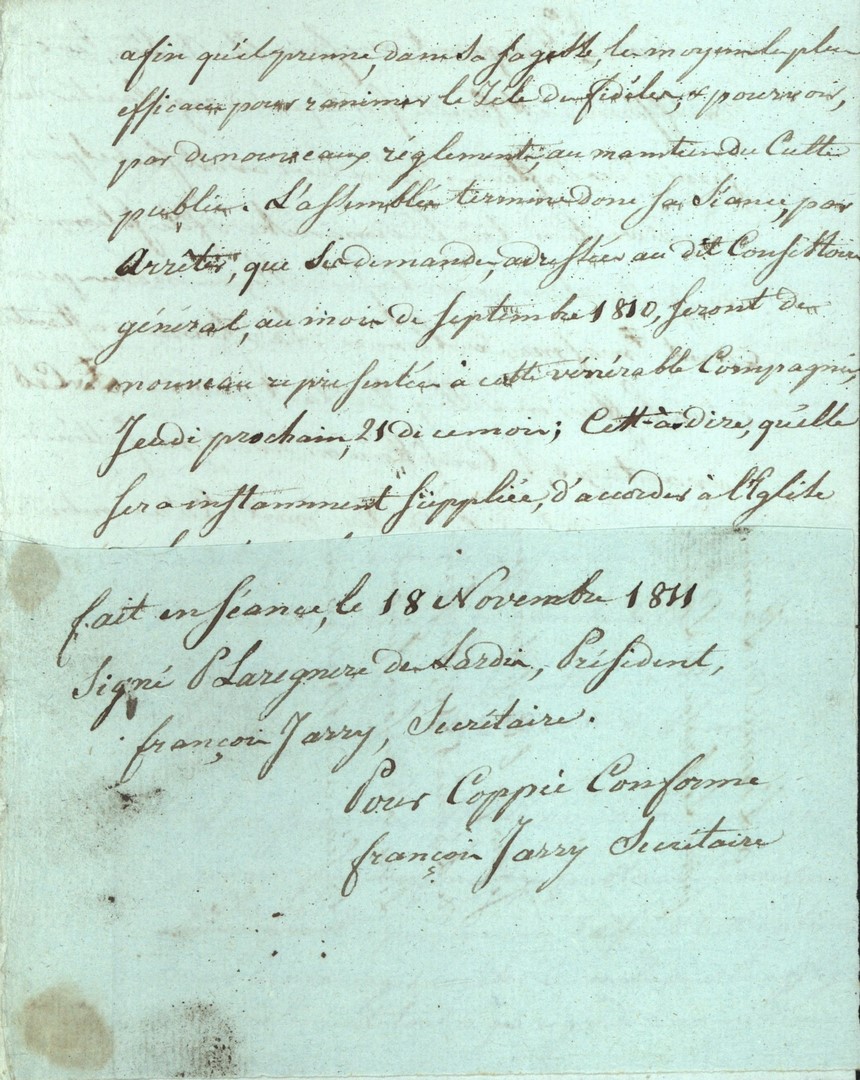 afin qu'il prenne, dans sa sagesse, le moyen le plus
efficace pour ranimer le Zéle des fidéles, & pourvoir,
par de nouveaux réglements, au maintien du Culte
public. L'assemblée termine donc sa Séance, par
Arrêter, que ses demandes, adressées au dit Consistoire
général, au mois de Septembre 1810, seront de
nouveau representées à cette vénérable Compagnie,
Jeudi prochain, 21 de ce mois; C'est-à-dire, qu'elle
sera instamment suppliée, d'accorder à l'Eglise
fait en séance, le 18 Novembre 1811
Signé P Laregnere de Sardin, Président,
françois Jarry, Secrétaire.
Pour Coppie Conforme
françois Jarry Secrétaire